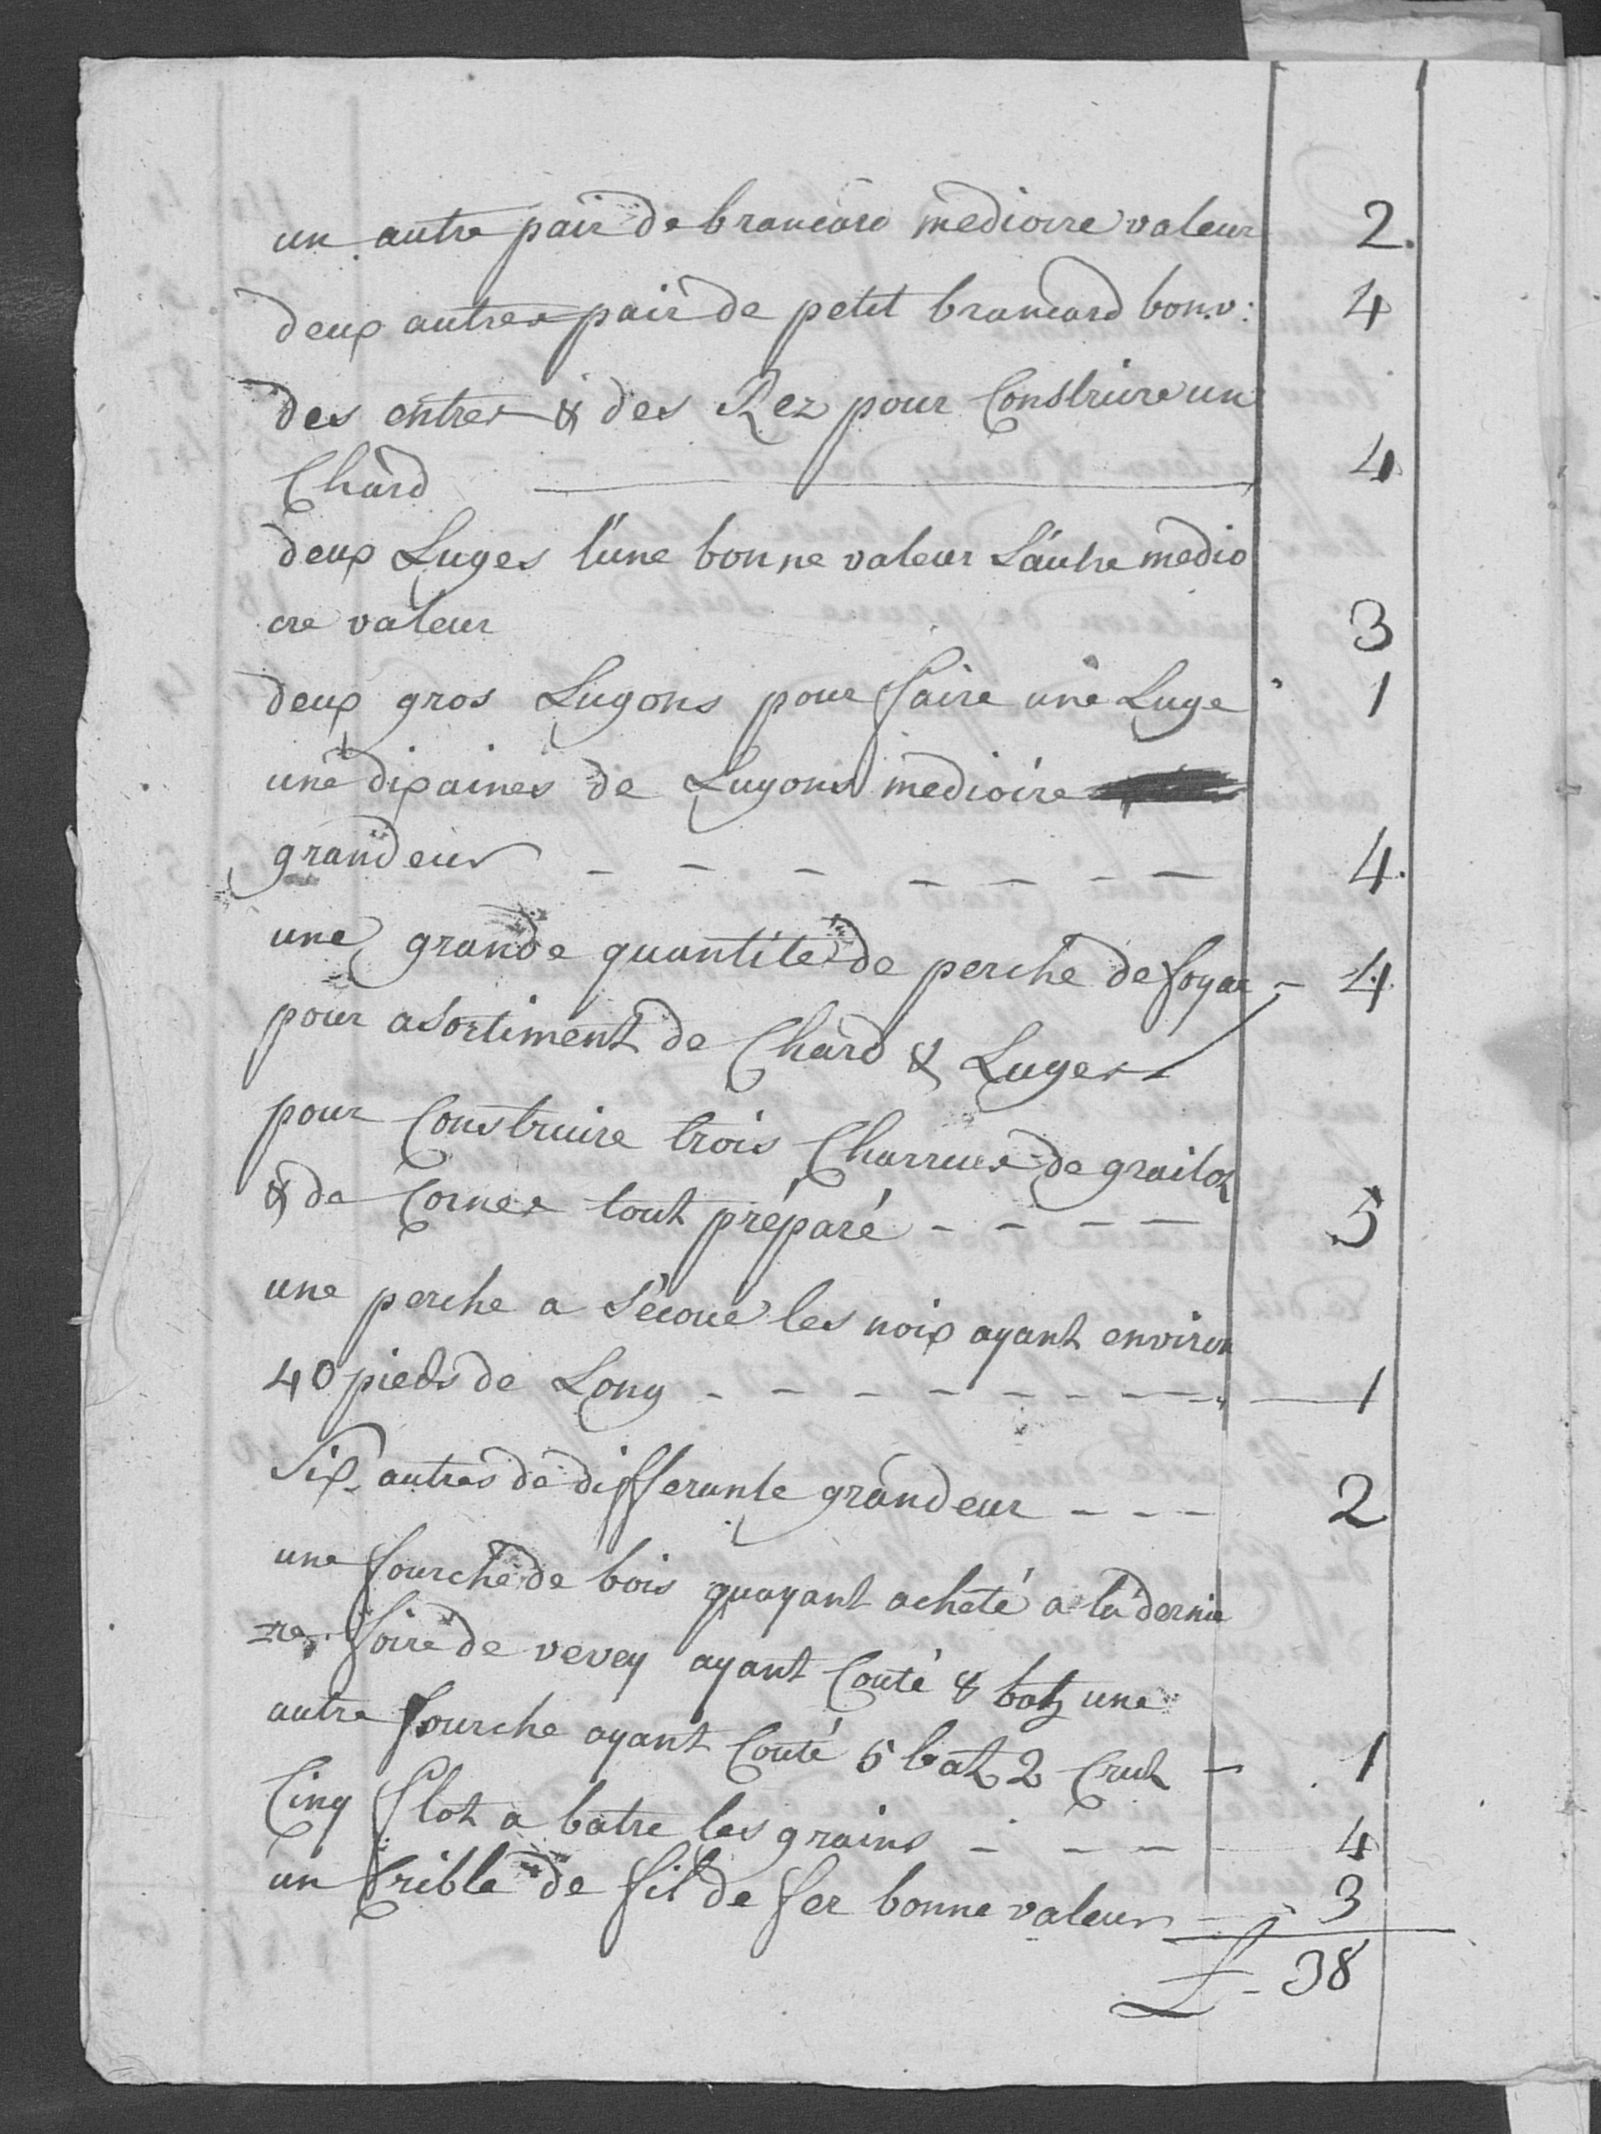 un autre pair de brancard medioire valeur 2.
deux autres pair de petit brancard bon.v: 4
des entres & des Rez pour Construire un
Chard 4
deux Luges l'une bonne valeur L'autre medio
cre valeur 3
deux gros Lugons pour faire une Luge 1
une dixaines de Lugons medioire
grandeur - - - - - - - 4.
une grande quantite de perche de foyar - 4
pour asortiment de Chard & Luges
pour Construire trois Charrues de
& de Cornes tout préparé - - - - 5
une perche a Sécoue les noix ayant environ
40 pieds de Long - - - - - - - - 1
Six autres de differante grandeur - - - 2
une fourche de bois quayant acheté a la dernie
=re foire de vevey ayant Couté 8 batz une
autre fourche ayant Couté 5 batz 2 Crutz - 1
Cinq flot a batre les grains - - - - 4
un Crible de fil de fer bonne valeur - 3
L - 38